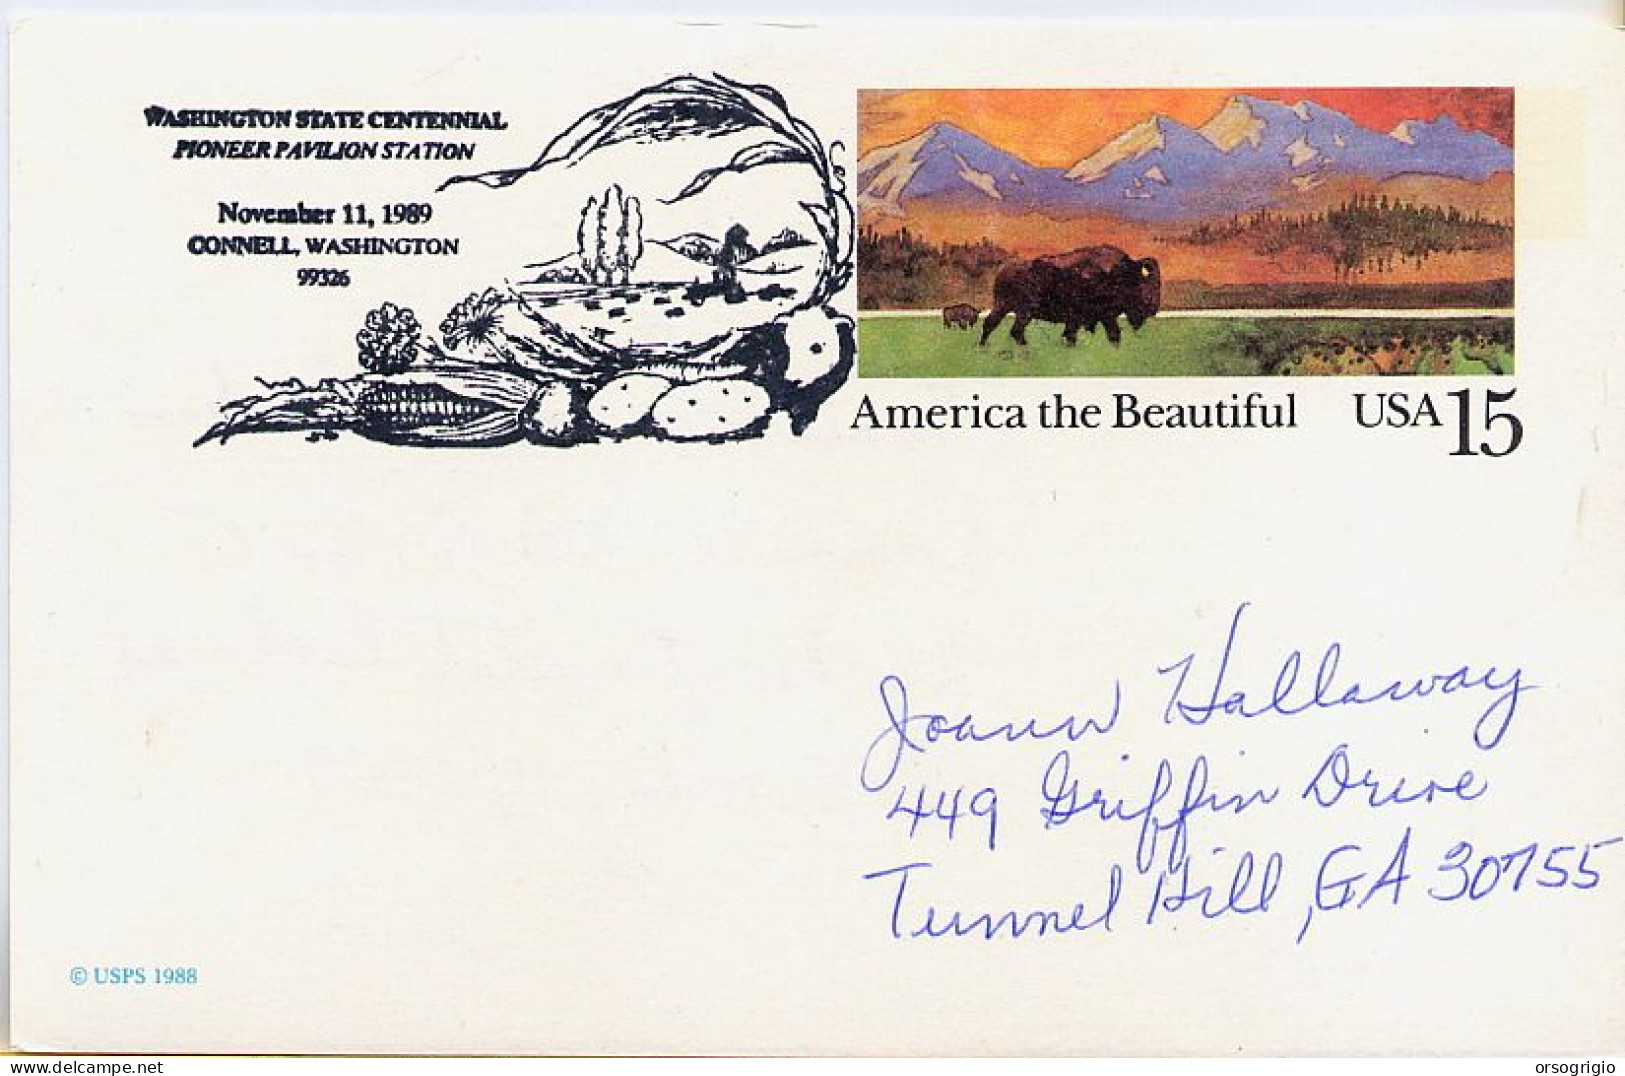 WASHINGTON STATE CENTENNIAL
PIONEER PAVILION STATION
November 11, 1989
CONNELL, WASHINGTON
99326
America the Beautiful USA 15
Joann Hallaway
449 Griffin Drive
Tunnel Hill, GA 30755
© USPS 1988
delcampe.net
orsogrigio